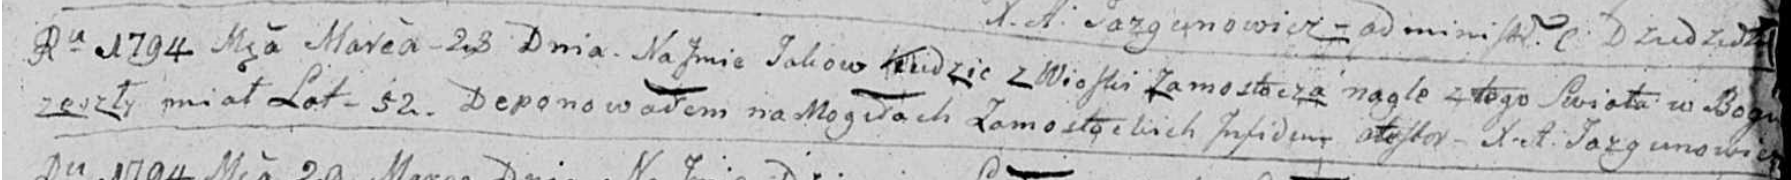 X. A. Jazgunowicz = administr. C. Dziedzi
Ru 1794 Mca Marca - 23 Dnia. Na Jmie Jakow Kudzie z Wioski Zamostocza nagle z tego Swiata w Bogu
zeszły miał Lat - 52. Deponowałem na Mogiłach Zamostockich Infidem attestor - X. A. Jazgunowicz
Ru 1794 Mca 29 Marca Dnia Na Jmie